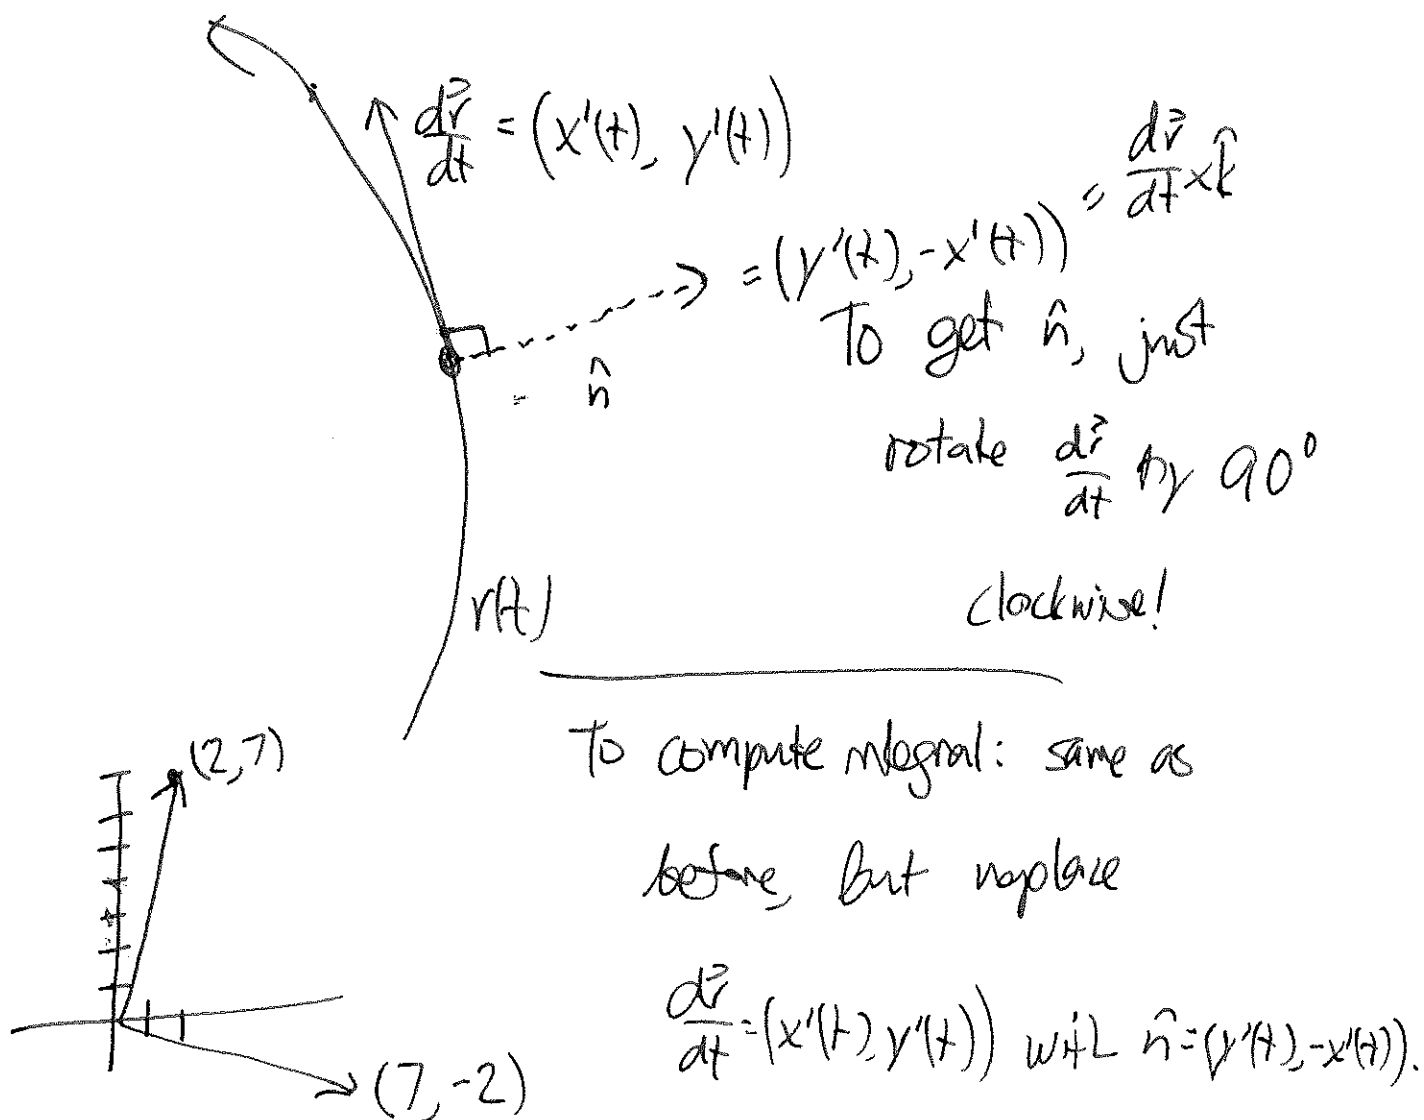 dr⃗/dt = (x'(t), y'(t))
= (y'(t), -x'(t)) = dr⃗/dt × k̂
n̂
To get n̂, just
rotate dr⃗/dt by 90°
clockwise!
r(t)
To compute integral: same as
before, but replace
dr⃗/dt = (x'(t), y'(t)) with n̂ = (y'(t), -x'(t)).
(2,7)
(7,-2)